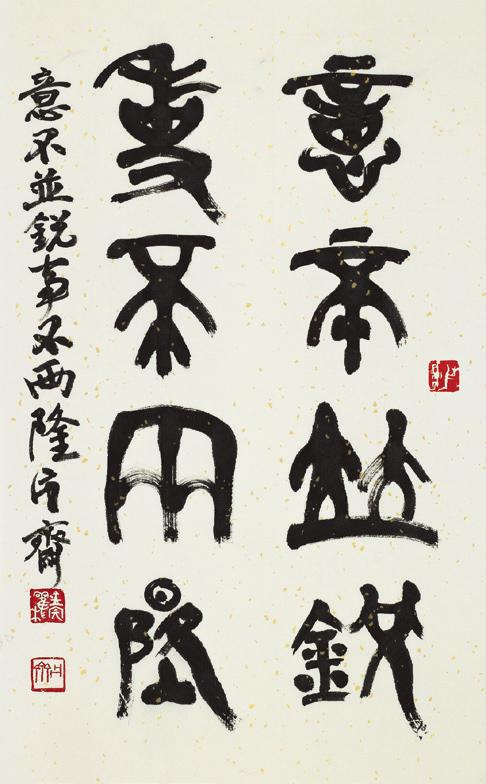 意不並銳
事不兩隆
意不並銳事不两隆片齋